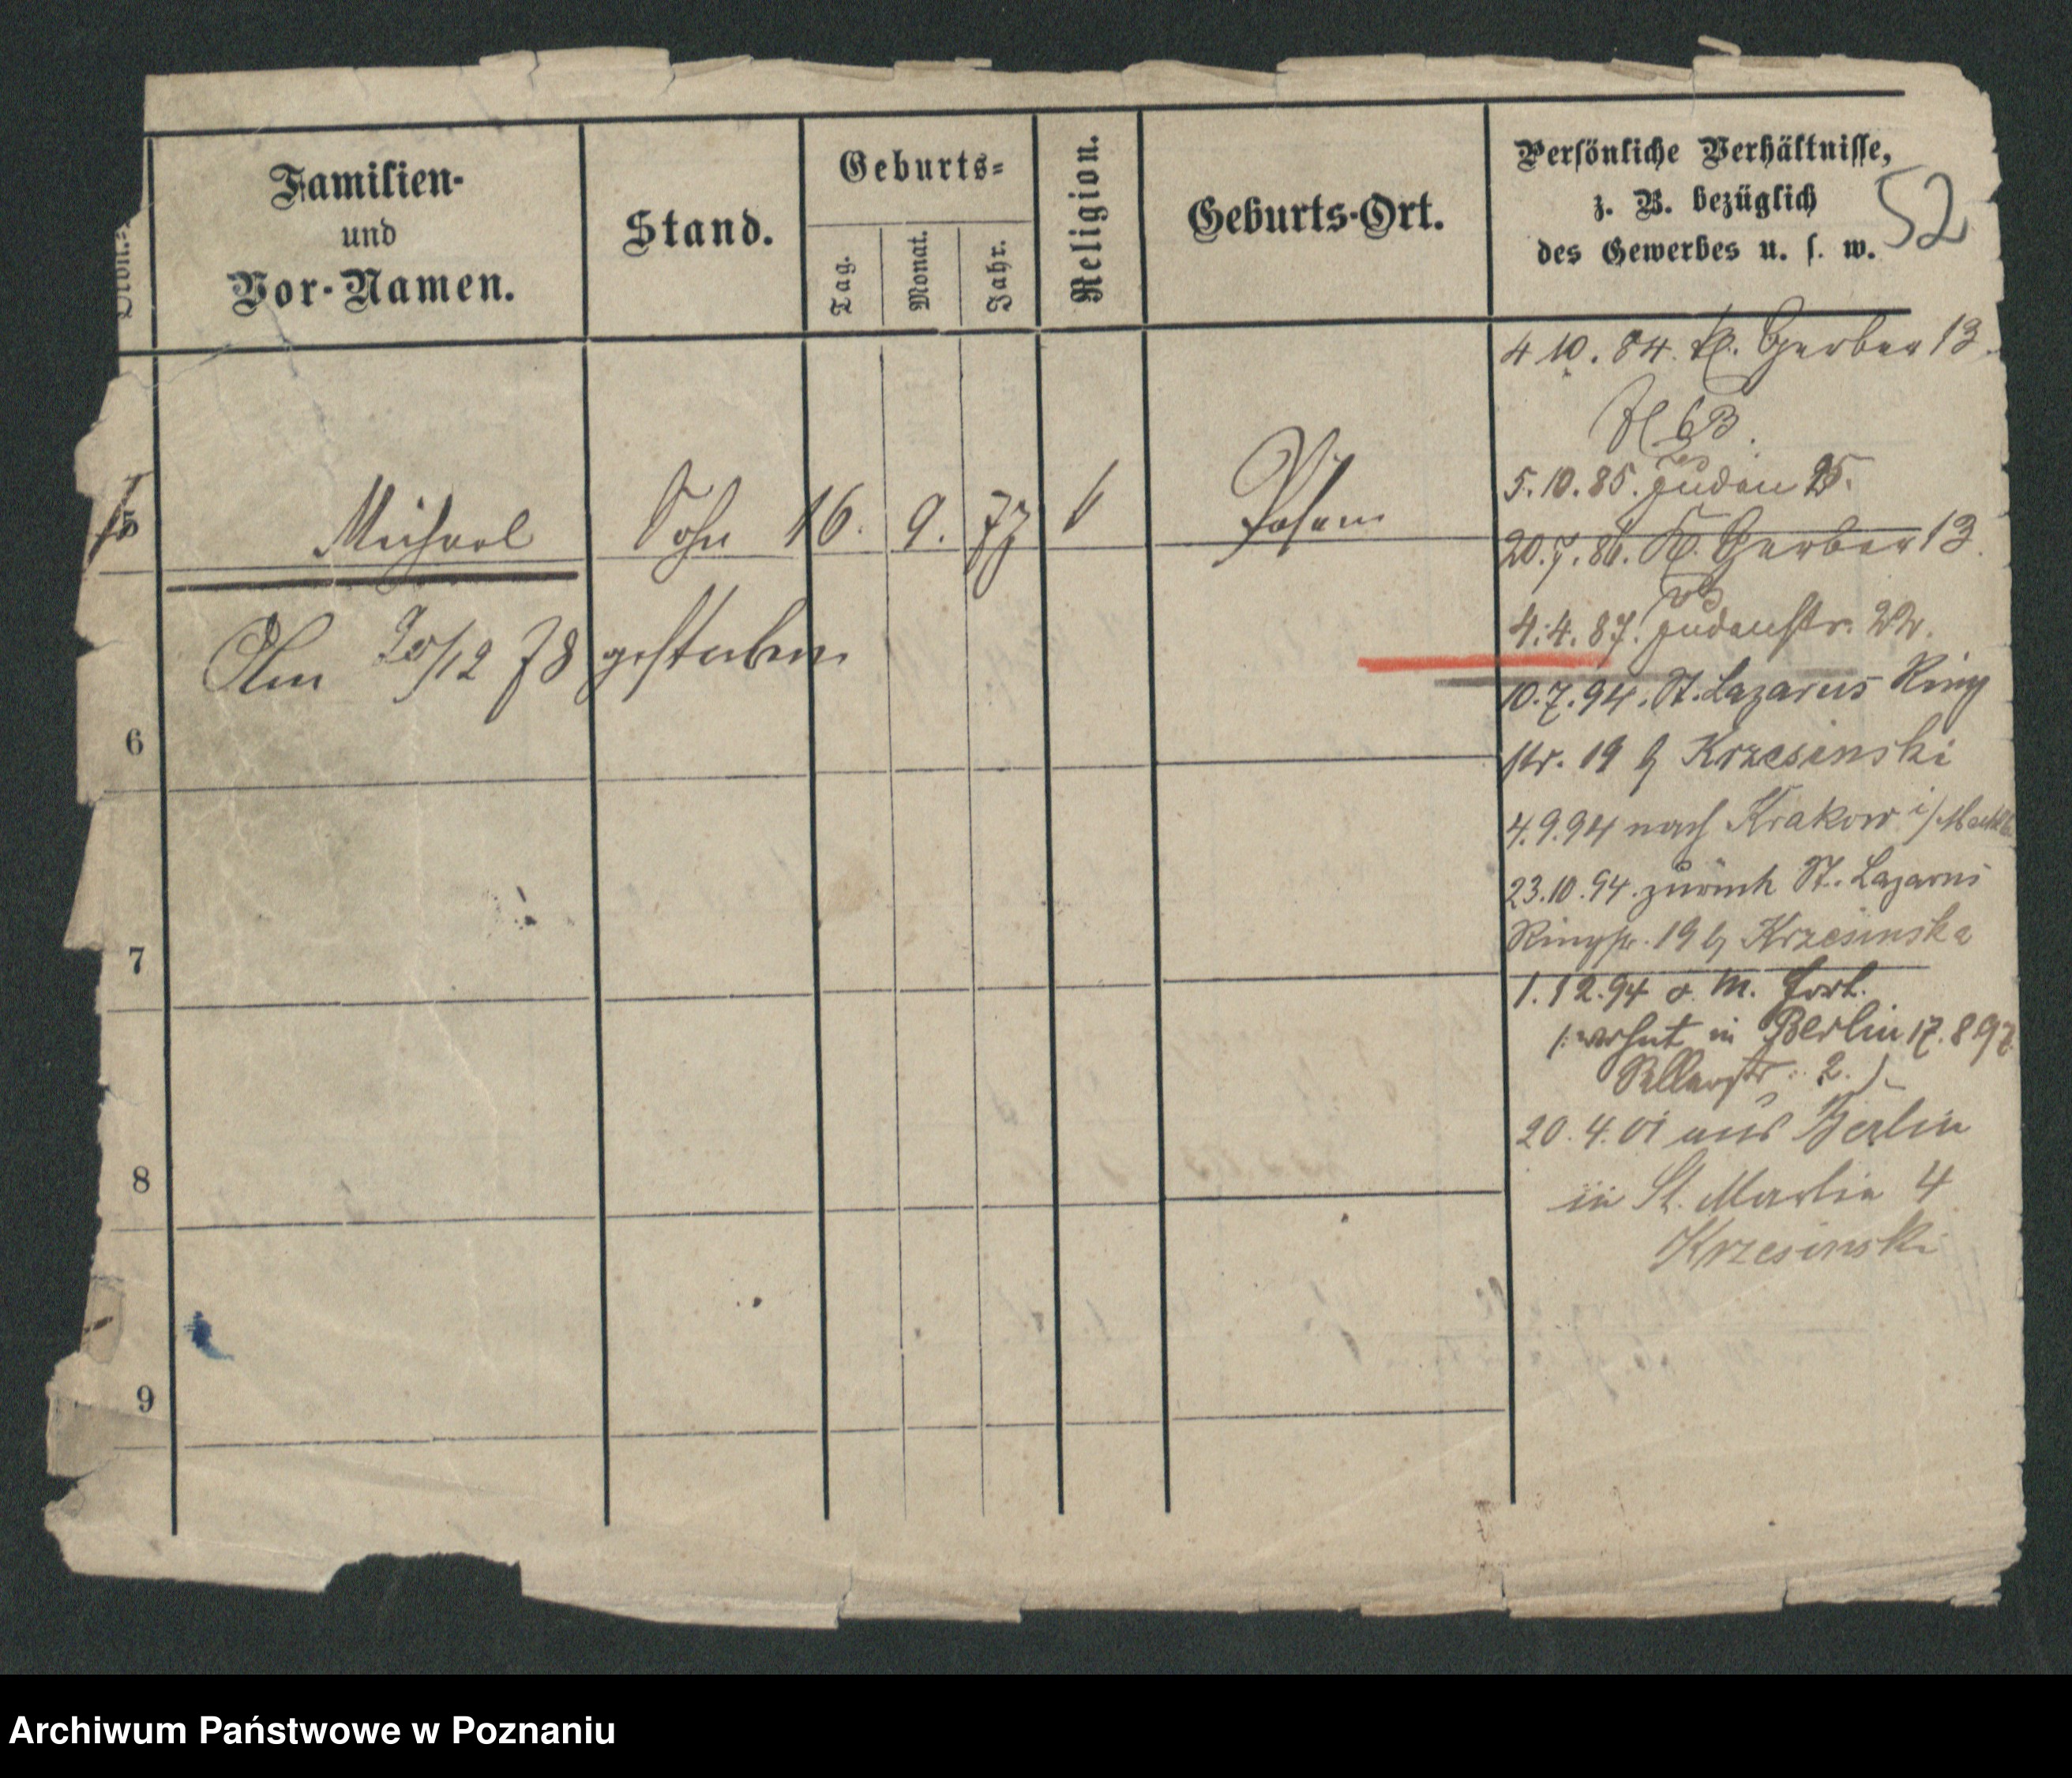 Familien-
und
Vor-Namen.
Stand.
Geburts-
Tag.
Monat.
Jahr.
Religion.
Geburts-Ort.
Persönliche Verhältnisse,
z. B. bezüglich
des Gewerbes u. s. w.
52
5
Michael
Sohn
16.
9.
77
Posen
Am 20/12 78 gestorben
6
7
8
9
4 10. 84. Kl. Gerber 13.
5.10.85. Juden 25.
20.7.86. Kl. Gerber 13.
4.4.87. Judenstr. 22.
10.7.94. St. Lazarus Ring
str. 19 b Krzesinski
4.9.94 nach Krakow i/Meckl
23.10.94. zurück St. Lazarus
Ringstr. 19 b Krzesinska
1.12.94 o. M. fort.
(: wohnt in Berlin 17.8 97.
2. :)
20.4.01 aus Berlin
in St. Martin 4
Krzesinski
Archiwum Państwowe w Poznaniu